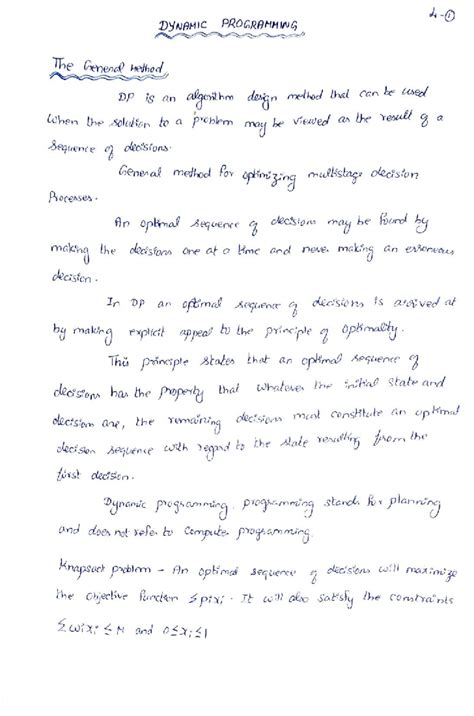 4-①
DYNAMIC PROGRAMMING
The General Method
DP is an algorithm design method that can be used
when the solution to a problem may be viewed as the result of a
sequence of decisions.
General method for optimizing multistage decision
Processes.
An optimal sequence of decisions may be found by
making the decisions one at a time and never making an erroneous
decision.
In DP an optimal sequence of decisions is arrived at
by making explicit appeal to the principle of optimality.
This principle states that an optimal sequence of
decisions has the property that whatever the initial state and
decision are, the remaining decisions must constitute an optimal
decision sequence with regard to the state resulting from the
first decision.
Dynamic programming, programming stands for planning
and does not refer to computer programming.
Knapsack problem - An optimal sequence of decisions will maximize
the objective function Σpixi. It will also satisfy the constraints
Σwixi ≤ M and 0≤xi≤1